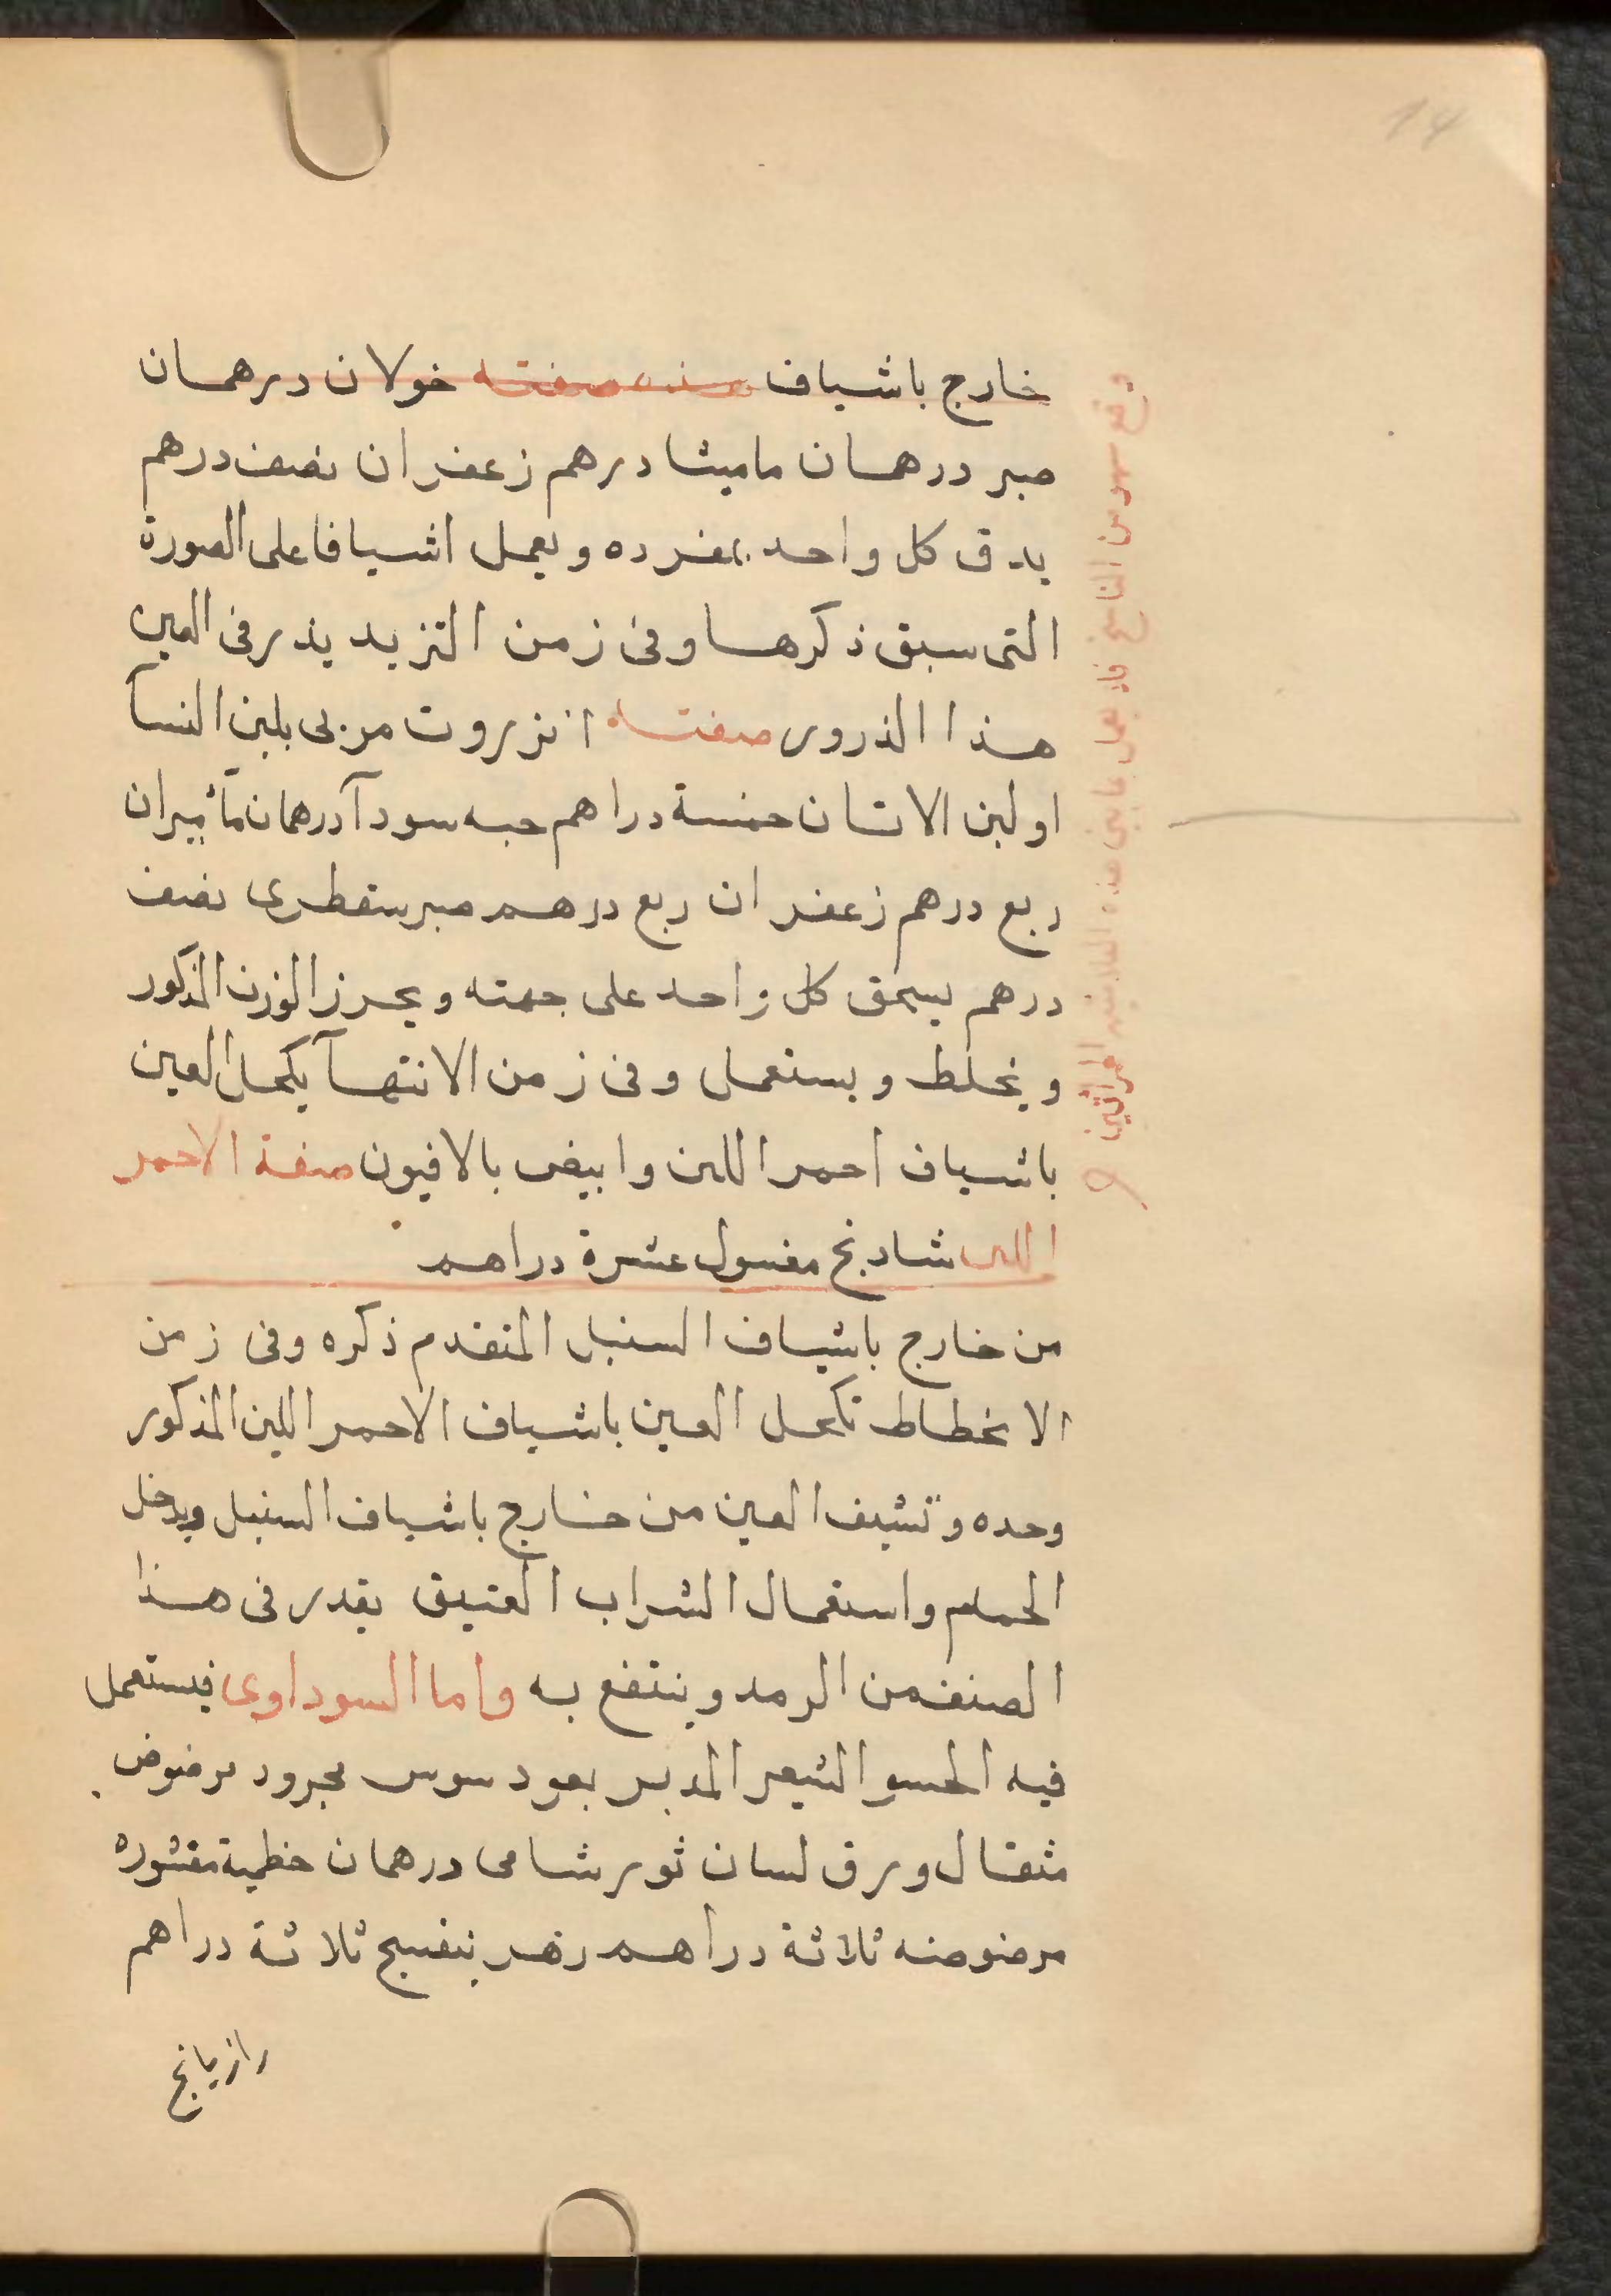 خارج باشياف هذه صفته خولان درهمان
صبر درهمان ماميثا درهم زعفران نصف درهم
يدق كل واحد بمفرده ويعمل اشيافا على الصورة
التى سبق ذكرها وفى زمن التزيد يذر فى العين
هذا الذرور صفته انزروت مربى بلبن النسآ
او لبن الاتان خمسة دراهم حبه سودآ درهمان مآميران
ربع درهم زعفران ربع درهم صبر سقطرى نصف
درهم يسحق كل واحد على جهته ويحرز الوزن المذكور
ويخلط ويستعمل وفى زمن الانتهآ يكحل العين
باشياف احمر اللين وابيض بالافيون صفة الاحمر
اللين شادنج مغسول عشرة دراهم
من خارج باشياف السنبل المتقدم ذكره وفى زمن
الانحطاط تكحل العين باشياف الاحمر اللين المذكور
وحده وتشيف العين من خارج باشياف السنبل ويدخل
الحمام واستعمال الشراب العتيق يقدر فى هذا
الصنف من الرمد وينتفع به واما السوداوى فيستعمل
فيه الحسو الشعير المدبر بعود سوس مجرود مرضوض
مثقال ورق لسان ثور شامى درهمان خطمية مقشوره
مرضوضه ثلاثة دراهم زهر بنفسج ثلاثة دراهم
رازيانج
وقع سهو من الناسخ فلا يعمل بما بين هذه العلامتين الحمرآتين
14